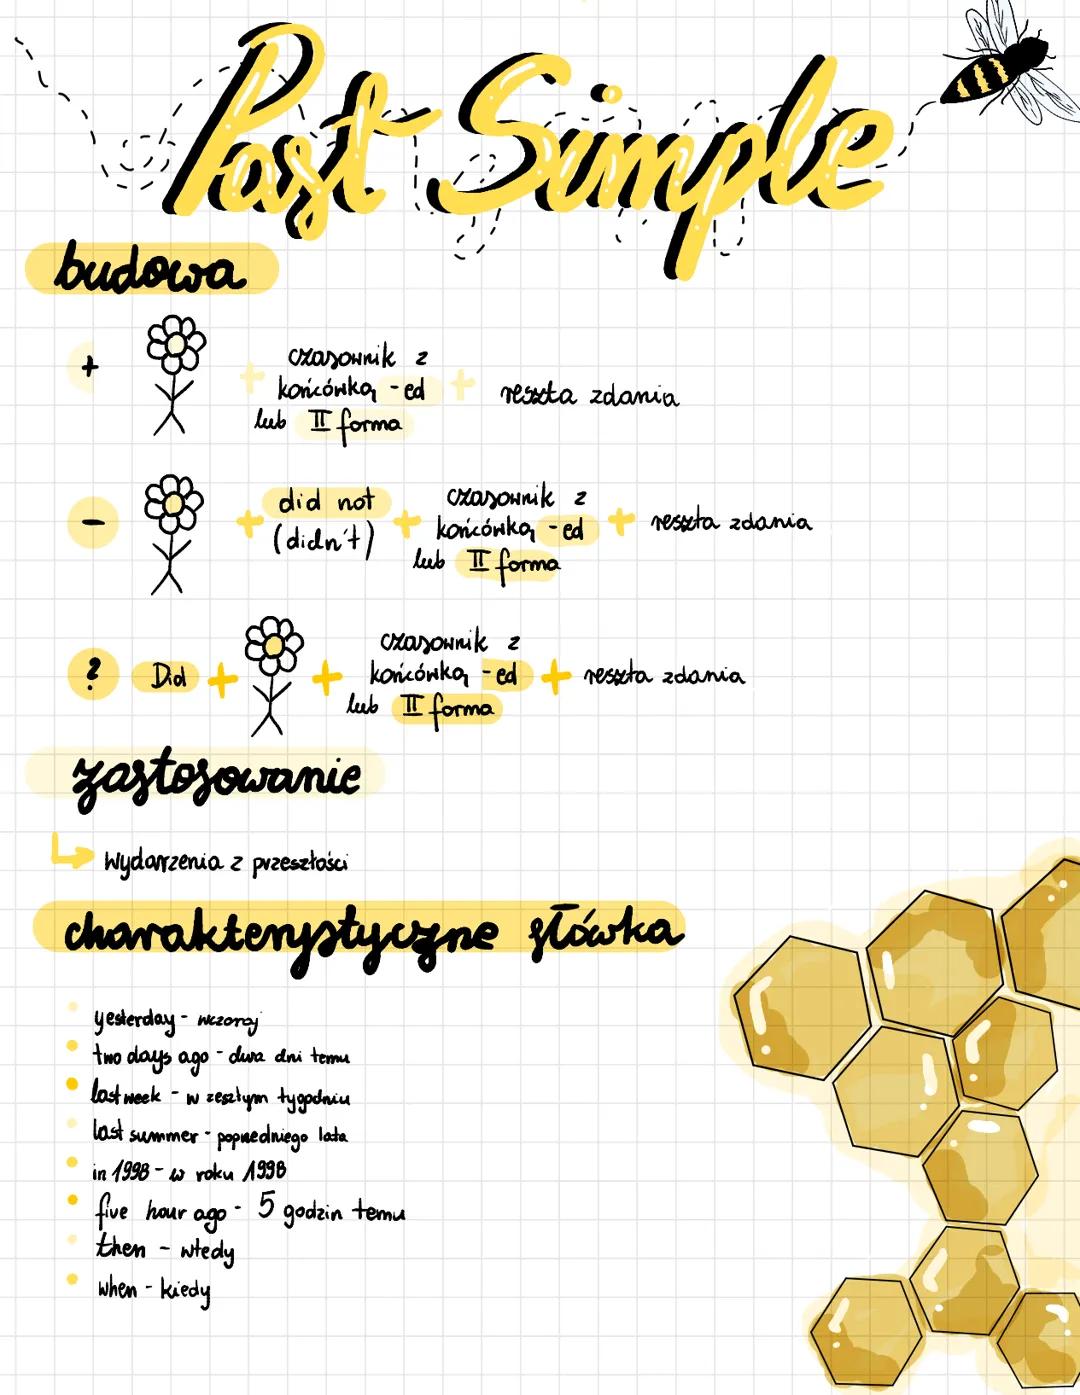 Past Simple
budowa
+ + czasownik z końcówką -ed lub II forma + reszta zdania
- + did not (didn't) + czasownik z końcówką -ed lub II forma + reszta zdania
? Did + + czasownik z końcówką -ed lub II forma + reszta zdania
zastosowanie
wydarzenia z przeszłości
charakterystyczne słówka
yesterday - wczoraj
two days ago - dwa dni temu
last week - w zeszłym tygodniu
last summer - poprzedniego lata
in 1998 - w roku 1998
five hour ago - 5 godzin temu
then - wtedy
when - kiedy